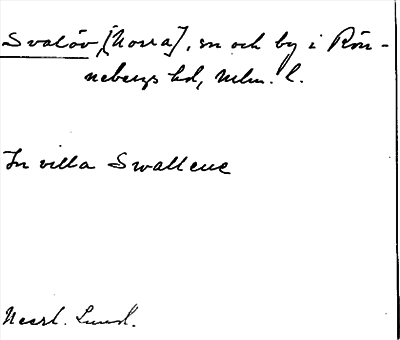 Svalöv, [Norra], sn och by i Rön-
nebergs hd, Mlm. l.
In villa Swallene
Necrl. Lund.